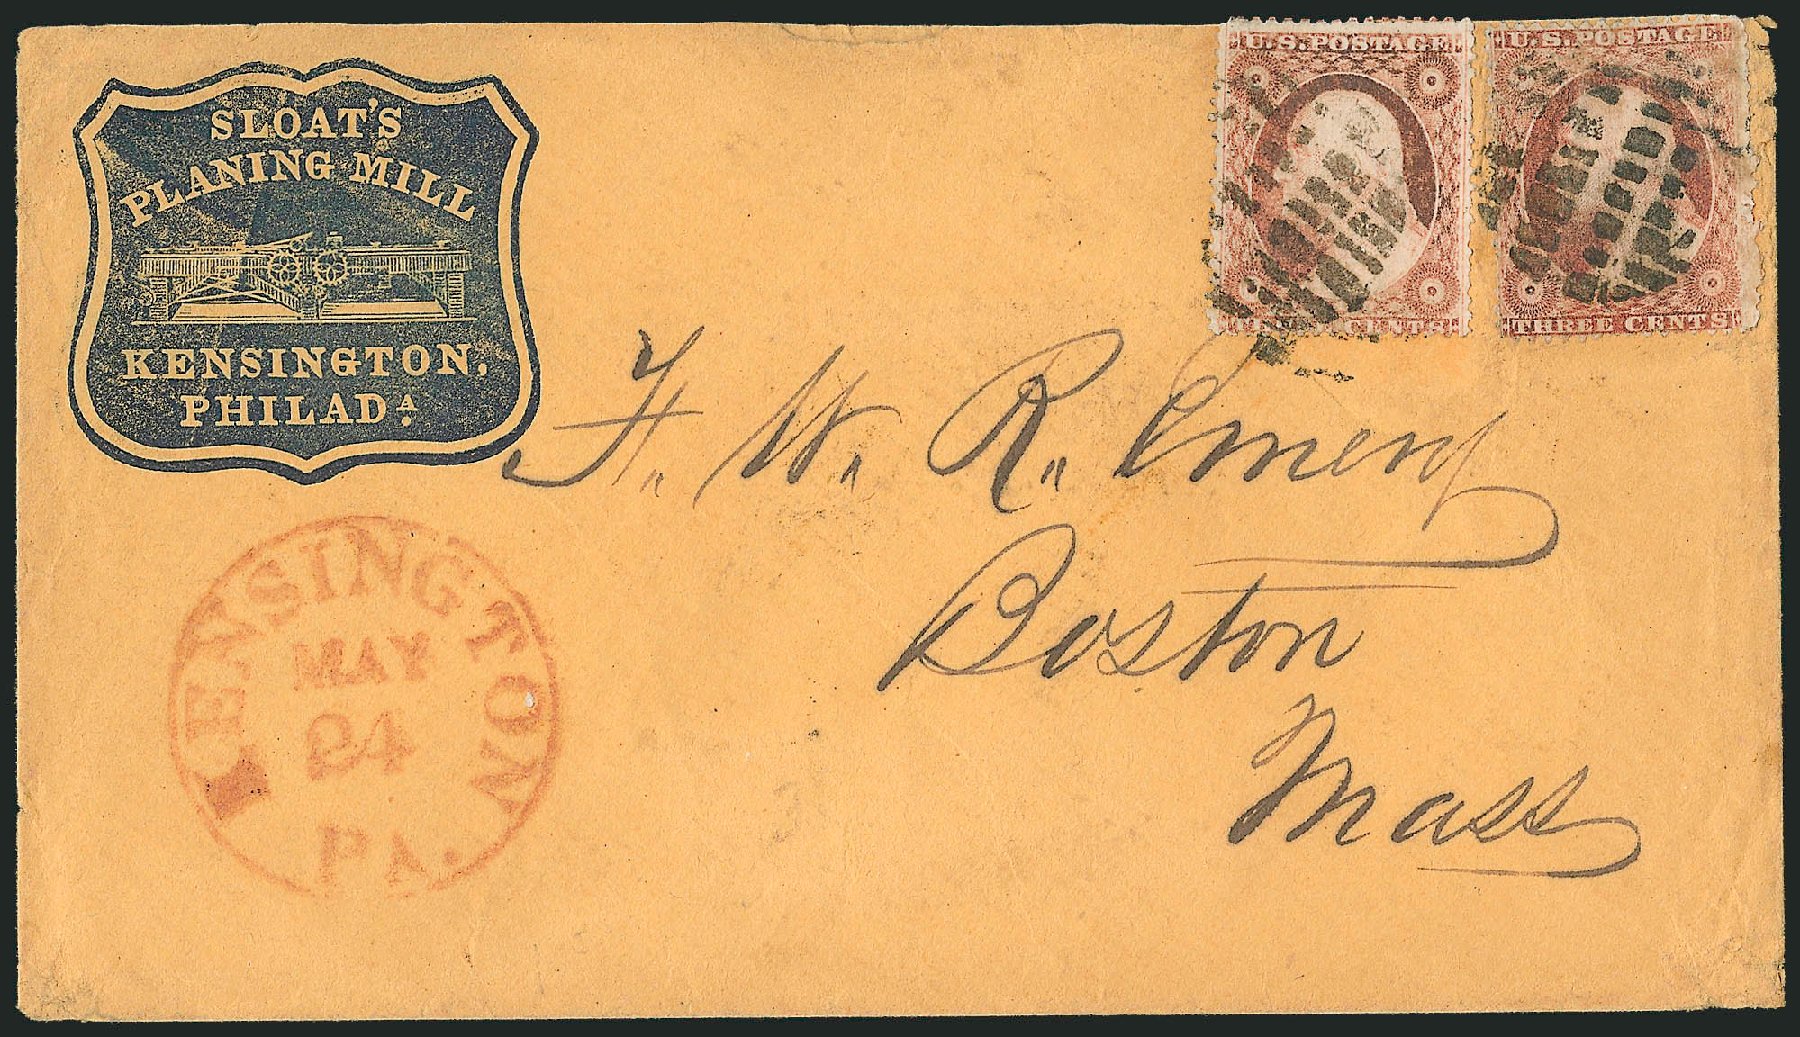 SLOAT'S
PLANING MILL
KENSINGTON,
PHILADA.
U.S. POSTAGE
THREE CENTS
U.S. POSTAGE
THREE CENTS
F. W. R. Emery
Boston
Mass
KENSINGTON
MAY
24
PA.